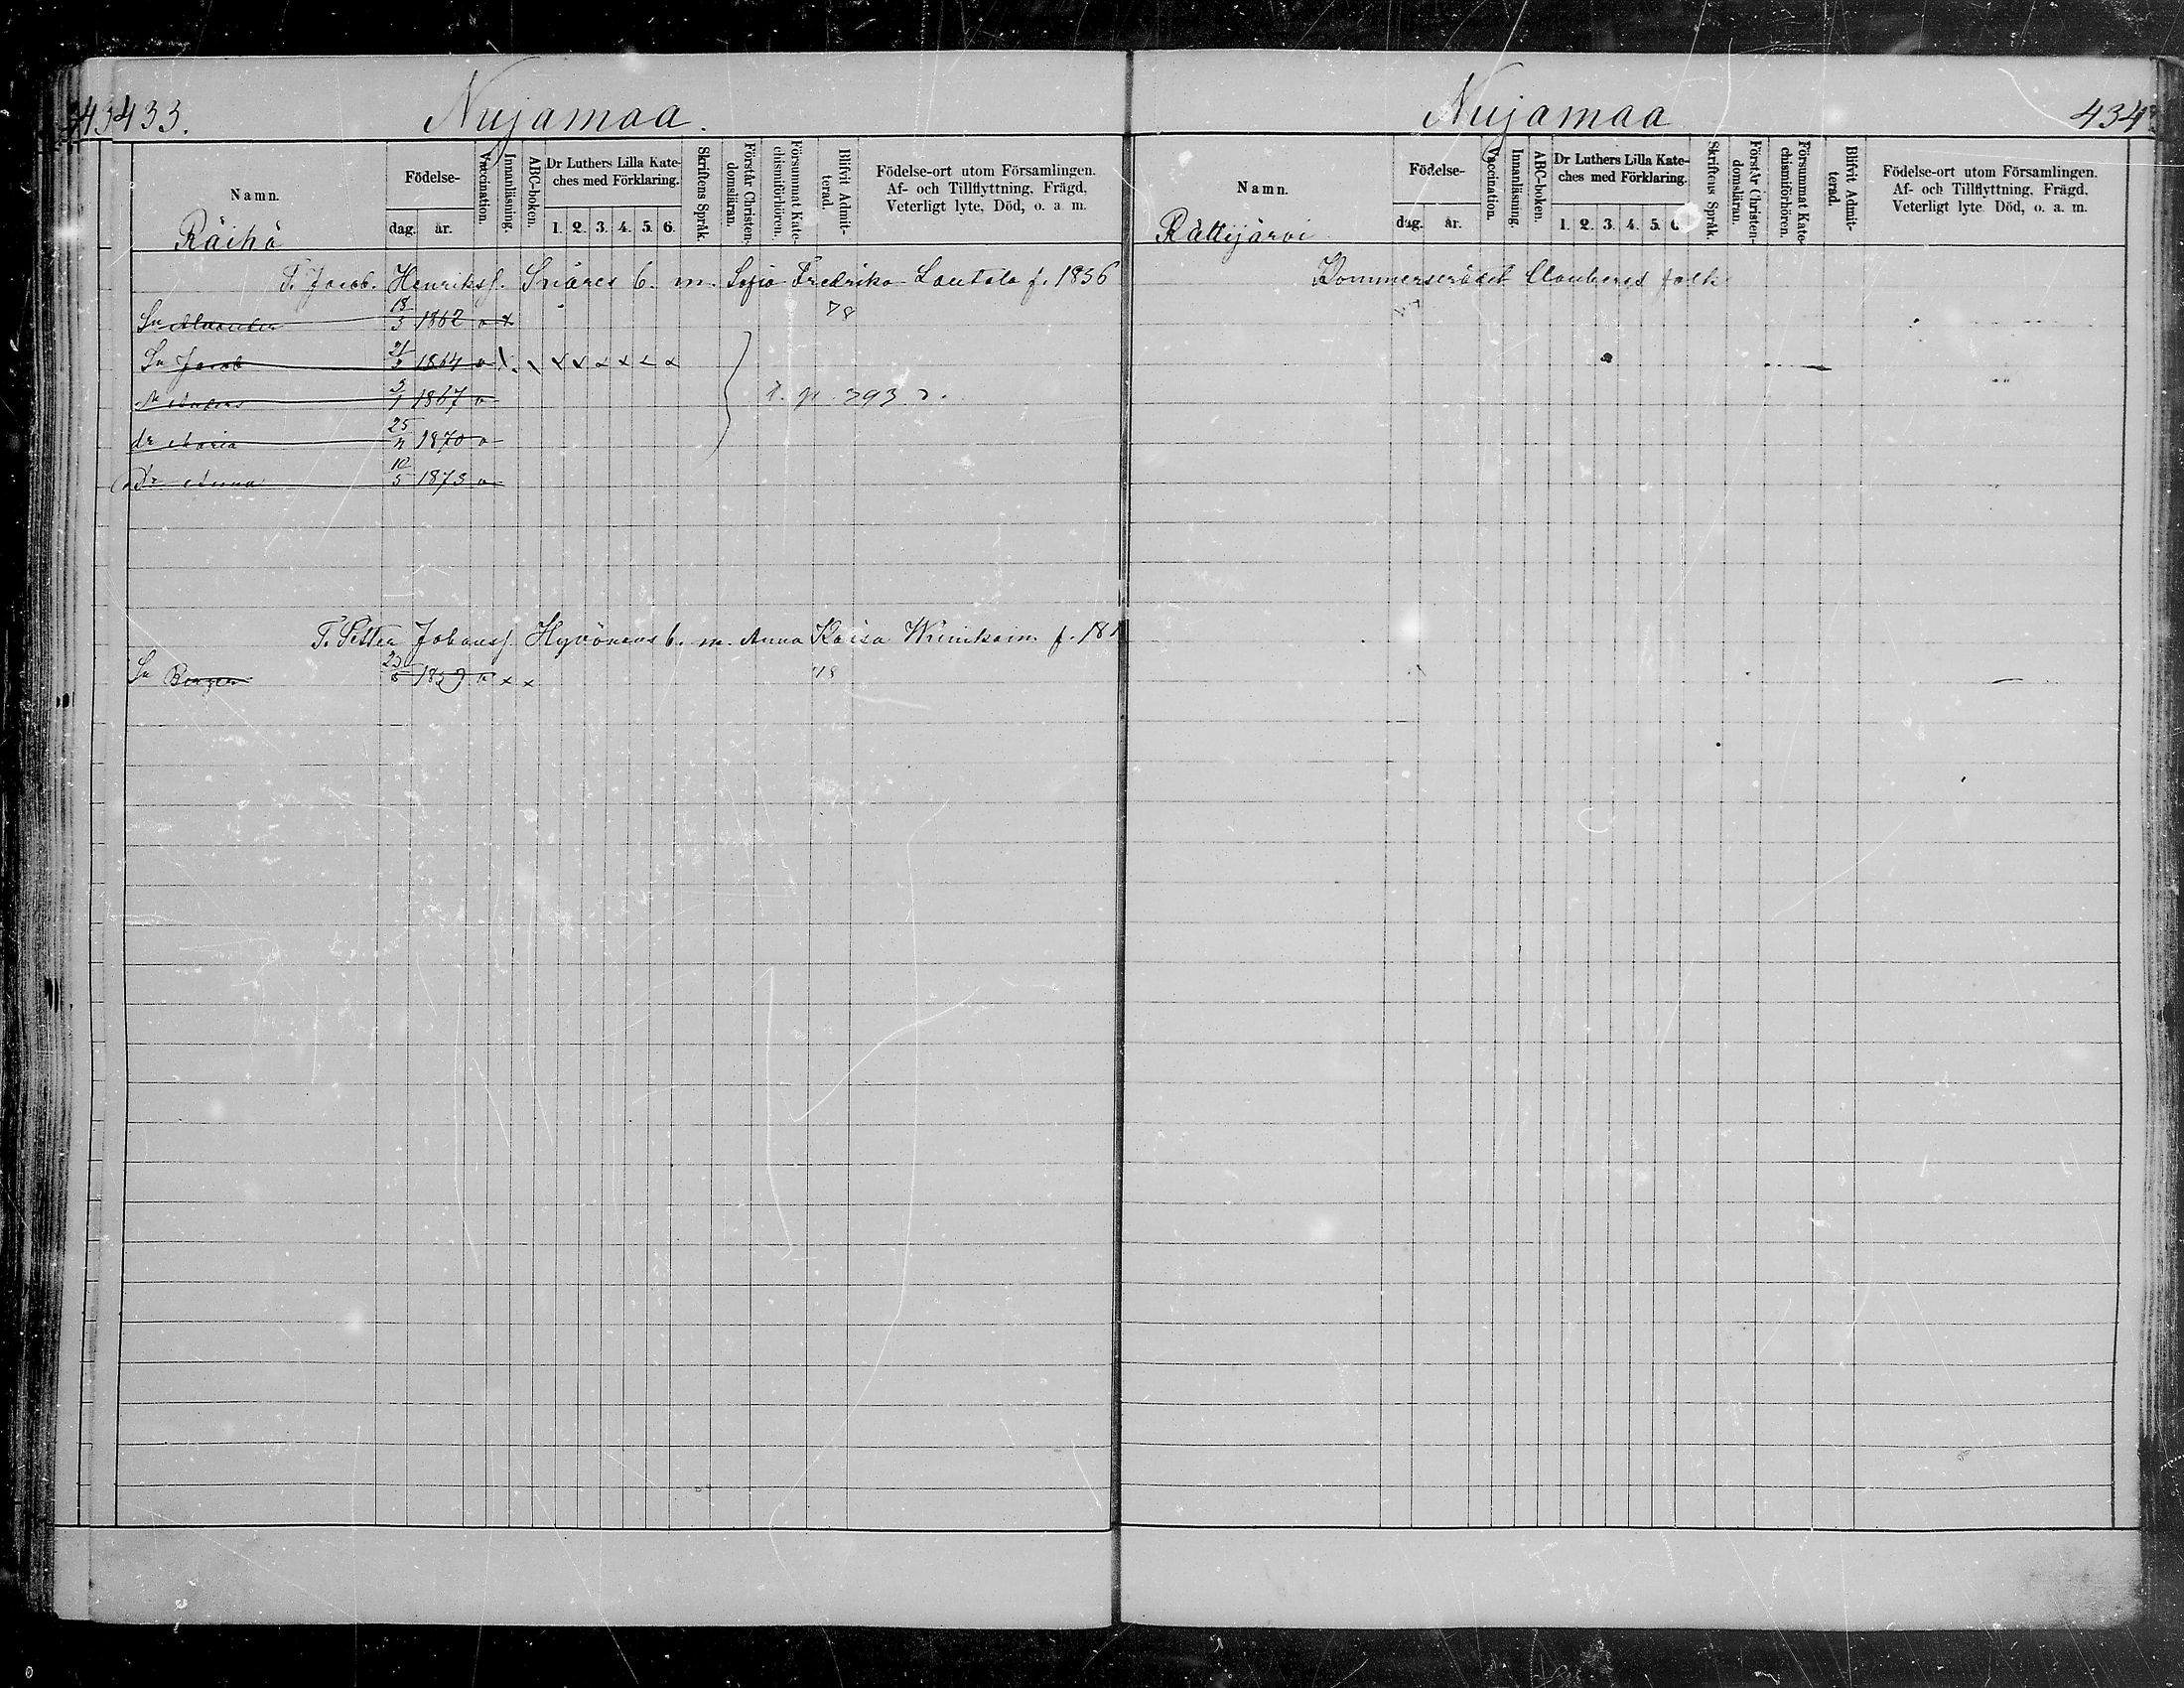 433.
Nujamaa.
Namn.
Födelse-
dag.
år.
Vaccination.
Innanläsning.
ABC-boken.
Dr Luthers Lilla Kate-
ches med Förklaring.
1. 2. 3. 4. 5. 6.
Skriftens Språk.
Förstår Christen-
domsläran.
Försummat Kate-
chismiförhören.
Blifvit Admit-
terad.
Födelse-ort utom Församlingen.
Af- och Tillflyttning, Frägd,
Veterligt lyte, Död, o. a. m.
Räihä
T. Jacob. Henrikss. b. m. Sofia Fredrika Lautala f. 1836
Sn 18/3 1862 78
Sn Jacob 21/5 1864
1867 t. p. 393
dr Maria 25 1870
Dr Anna 12/5 1873
T. Petter Johanss. Hyvönens b. m. Anna Kaisa f. 181
Sn 78
Nujamaa
434
Namn.
Födelse-
dag.
år.
Vaccination.
Innanläsning.
ABC-boken.
Dr Luthers Lilla Kate-
ches med Förklaring.
1. 2. 3. 4. 5. 6
Skriftens Språk.
Förstår Christen-
domsläran.
Försummat Kate-
chismiförhören.
Blifvit Admit-
terad.
Födelse-ort utom Församlingen.
Af- och Tillflyttning, Frägd,
Veterligt lyte Död, o. a. m.
Rättijärvi
Kommerserådet folk